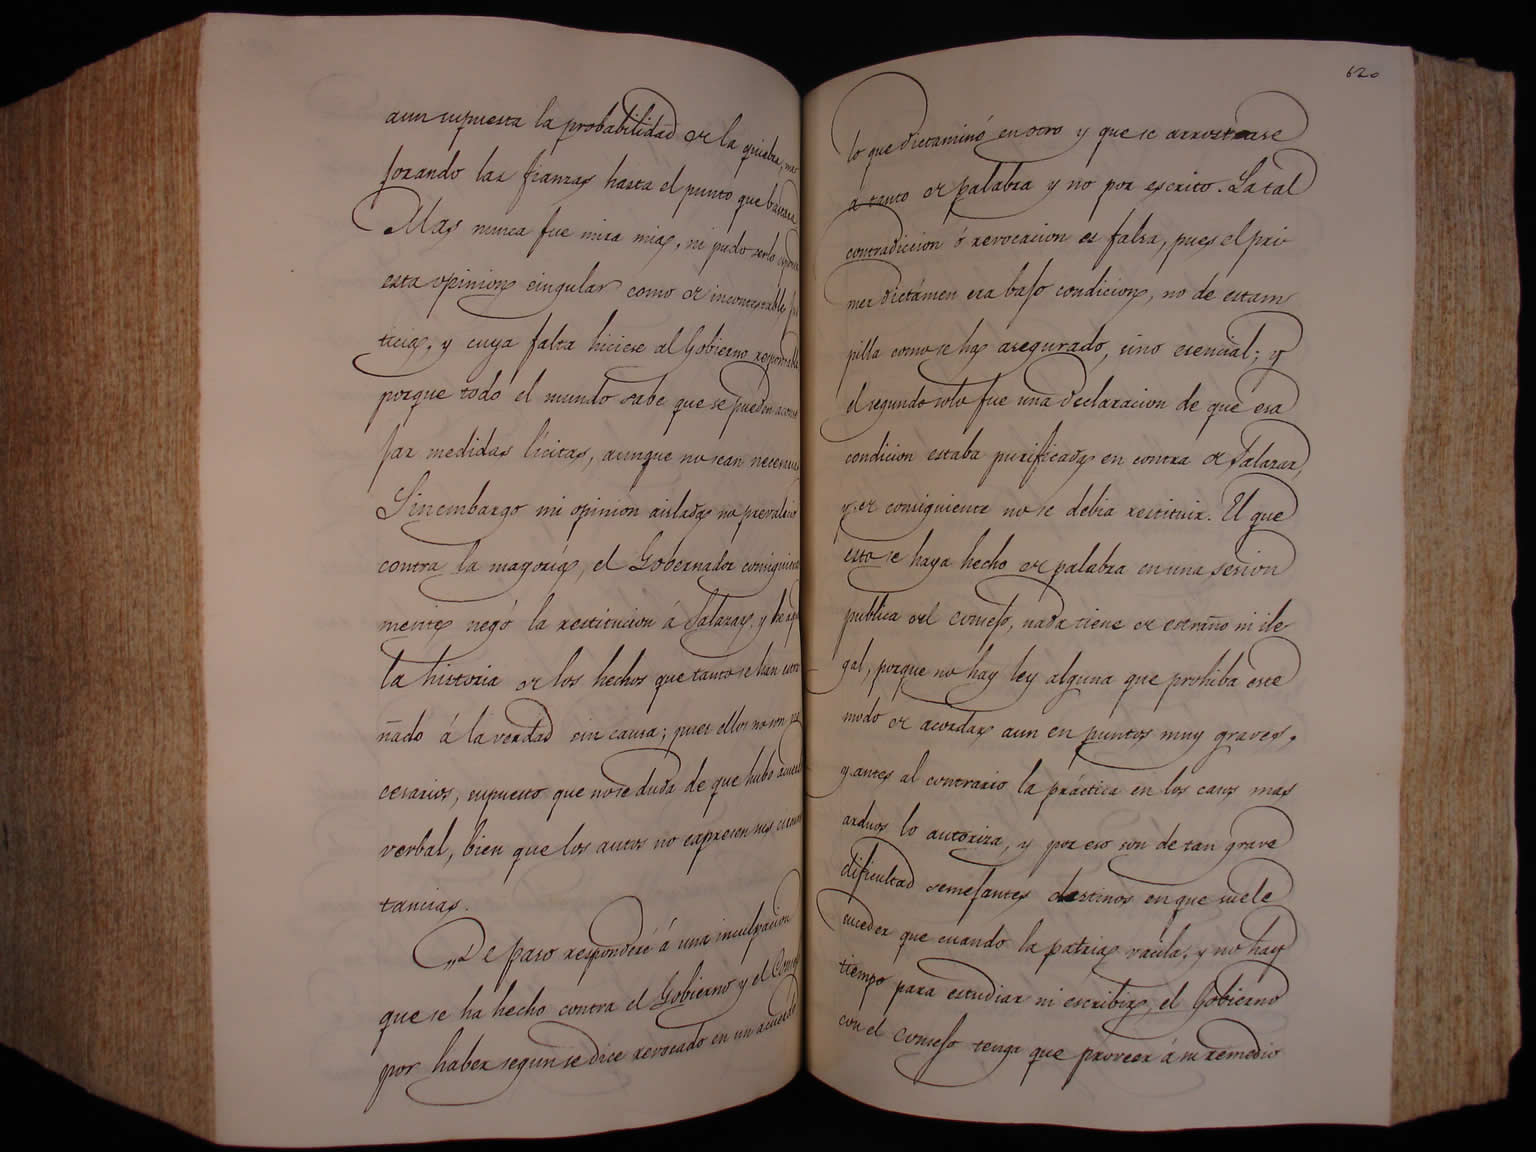 aun supuesta la probabilidad de la quiebra,
forzando las fianzas hasta el punto que bastara
Mas nunca fue mira mia, ni pudo serlo
esta opinion singular como de incontestable jus
ticia, y cuya falta hiciese al Gobierno responsable
porque todo el mundo sabe que se pueden acon
jar medidas lícitas, aunque no sean necesarias
Sinembargo mi opinion aislada no prevaleció
contra la mayoría, el Gobernador consiguiente
mente negó la restitucion á Salazar, y he aqui
la historia de los hechos que tanto se han estra
ñado á la verdad sin causa; pues ellos no son ne
cesarios, supuesto que no se duda de que hubo acuerdo
verbal, bien que los autos no expresen sus circuns
tancias.
„De paso responderé á una inculpacion
que se ha hecho contra el Gobierno y el Consejo
por haber segun se dice revocado en un acuerdo
620
lo que dictaminó en otro y que se arrostrase
á tanto de palabra y no por escrito. La tal
contradiccion ó revocacion es falsa, pues el pri
mer dictámen era bajo condicion, no de estam
pilla como se ha asegurado, sino esencial; y
el segundo solo fue una declaracion de que esa
condicion estaba purificada en contra de Salazar,
y de consiguiente no se debia restituir. El que
esto se haya hecho de palabra en una sesion
publica del Consejo, nada tiene de estraño ni ile
gal, porque no hay ley alguna que prohiba este
modo de acordar aun en puntos muy graves,
y antes al contrario la práctica en los casos mas
arduos lo autoriza, y por eso son de tan grave
dificultad semejantes destinos en que suele
suceder que cuando la patria vacila, y no hay
tiempo para estudiar ni escribir, el Gobierno
con el Consejo tenga que proveer á su remedio